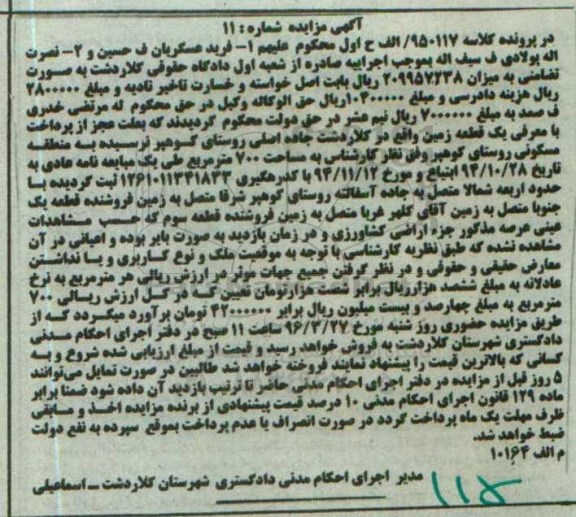 آگهی مزایده شماره : ۱۱
در پرونده کلاسه ۹۵۰۱۱۷/ الف ح اول محکوم علیهم ۱- فرید عسکریان ف حسین و ۲- نصرت
اله پولادی ف سیف اله بموجب اجراییه صادره از شعبه اول دادگاه حقوقی کلاردشت به صورت
تضامنی به میزان ۲۰۹۹۵۷۲۳۸ ریال بابت اصل خواسته و خسارت تاخیر تادیه و مبلغ ۲۸۰۰۰۰۰
ریال هزینه دادرسی و مبلغ ۱۰۴۰۰۰۰۰ریال حق الوکاله وکیل در حق محکوم له مرتضی خدری
ف صمد به مبلغ ۷۰۰۰۰۰۰ ریال نیم عشر در حق دولت محکوم گردیدند که بعلت عجز از پرداخت
با معرفی یک قطعه زمین واقع در کلاردشت جاده اصلی روستای گوهپر نرسیده به منطقه
مسکونی روستای گوهپر وفق نظر کارشناس به مساحت ۷۰۰ مترمربع طی یک مبایعه نامه عادی به
تاریخ ۹۴/۱۰/۲۸ ابتیاع و مورخ ۹۴/۱۱/۱۲ با کدرهگیری ۱۲۶۱۰۱۱۳۴۱۸۳۳ ثبت گردیده با
حدود اربعه شمالا متصل به جاده آسفالته روستای گوهپر شرقا متصل به زمین فروشنده قطعه یک
جنوبا متصل به زمین آقای کلهر غربا متصل به زمین فروشنده قطعه سوم که حسب مشاهدات
عینی عرصه مذکور جزء اراضی کشاورزی و در زمان بازدید به صورت بایر بوده و اعیانی در آن
مشاهده نشده که طبق نظریه کارشناسی با توجه به موقعیت ملک و نوع کاربری و با نداشتن
معارض حقیقی و حقوقی و در نظر گرفتن جمیع جهات موثر در ارزش ریالی هر مترمربع به نرخ
عادلانه به مبلغ ششصد هزارریال برابر شصت هزارتومان تعیین که در کل ارزش ریالی ۷۰۰
مترمربع به مبلغ چهارصد و بیست میلیون ریال برابر ۴۲۰۰۰۰۰۰ تومان برآورد میگردد که از
طریق مزایده حضوری روز شنبه مورخ ۹۶/۳/۲۷ ساعت ۱۱ صبح در دفتر اجرای احکام مدنی
دادگستری شهرستان کلاردشت به فروش خواهد رسید و قیمت از مبلغ ارزیابی شده شروع و به
کسانی که بالاترین قیمت را پیشنهاد نمایند فروخته خواهد شد طالبین در صورت تمایل می‌توانند
۵ روز قبل از مزایده در دفتر اجرای احکام مدنی حاضر تا ترتیب بازدید آن داده شود ضمنا برابر
ماده ۱۲۹ قانون اجرای احکام مدنی ۱۰ درصد قیمت پیشنهادی از برنده مزایده اخذ و مابقی
ظرف مهلت یک ماه پرداخت گردد در صورت انصراف یا عدم پرداخت بموقع سپرده به نفع دولت
ضبط خواهد شد.
م الف ۱۰۱۶۴
مدیر اجرای احکام مدنی دادگستری شهرستان کلاردشت – اسماعیلی